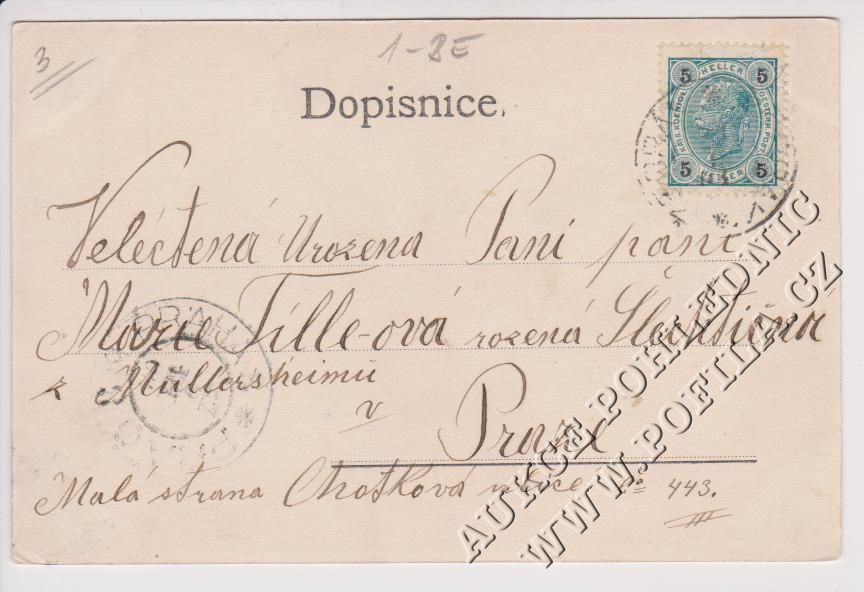 3
1-BE
Dopisnice.
5 HELLER 5
KAIS. KOENIGL. OESTERR. POST.
5 HELLER 5
Velectená Urozena Paní paní
Marie Tille-ová rozená Šlechtična
z Müllersheimŭ
v
Praze
Malá strana Chotková ulice čo 443.
PRAHA
PRAG
AUKCE POHLEDNIC
WWW.POFILA.CZ